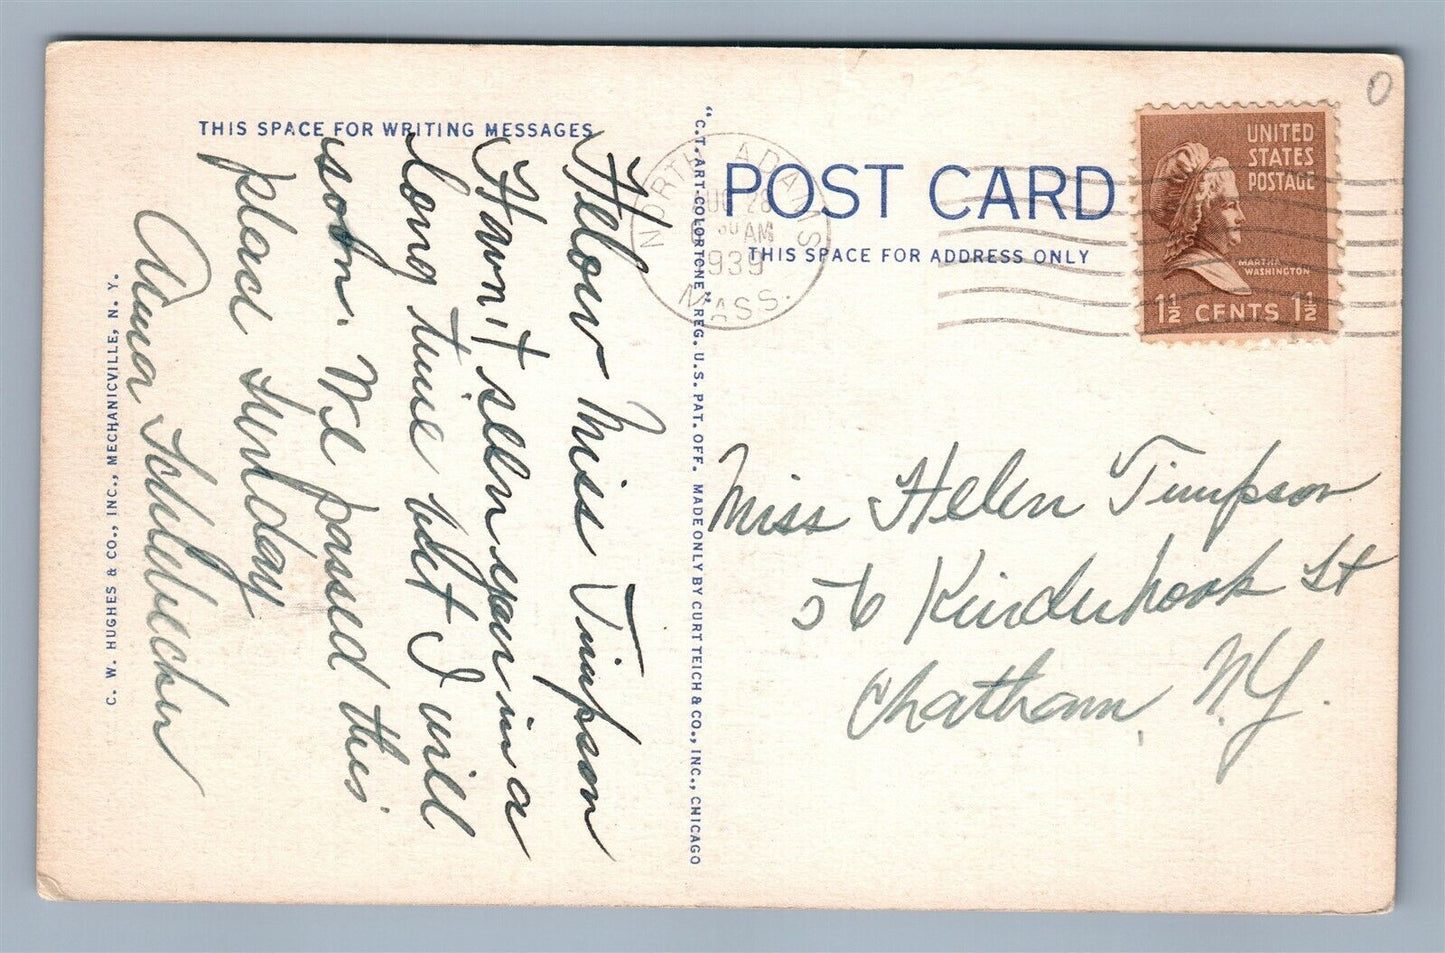 THIS SPACE FOR WRITING MESSAGES
Hellow Miss Timpson
Havn't seen you in a
long time but I will
soon. We passed this
place Sunday
Anna
C. W. HUGHES & CO., INC., MECHANICVILLE, N. Y.
"C.T. ART-COLORTONE" REG. U.S. PAT. OFF. MADE ONLY BY CURT TEICH & CO., INC., CHICAGO
NORTH ADAMS
28
30 AM
1939
MASS.
POST CARD
THIS SPACE FOR ADDRESS ONLY
UNITED
STATES
POSTAGE
MARTHA
WASHINGTON
1½ CENTS 1½
Miss Helen Timpson
56 Kinderhook St
Chatham, N.Y.
0